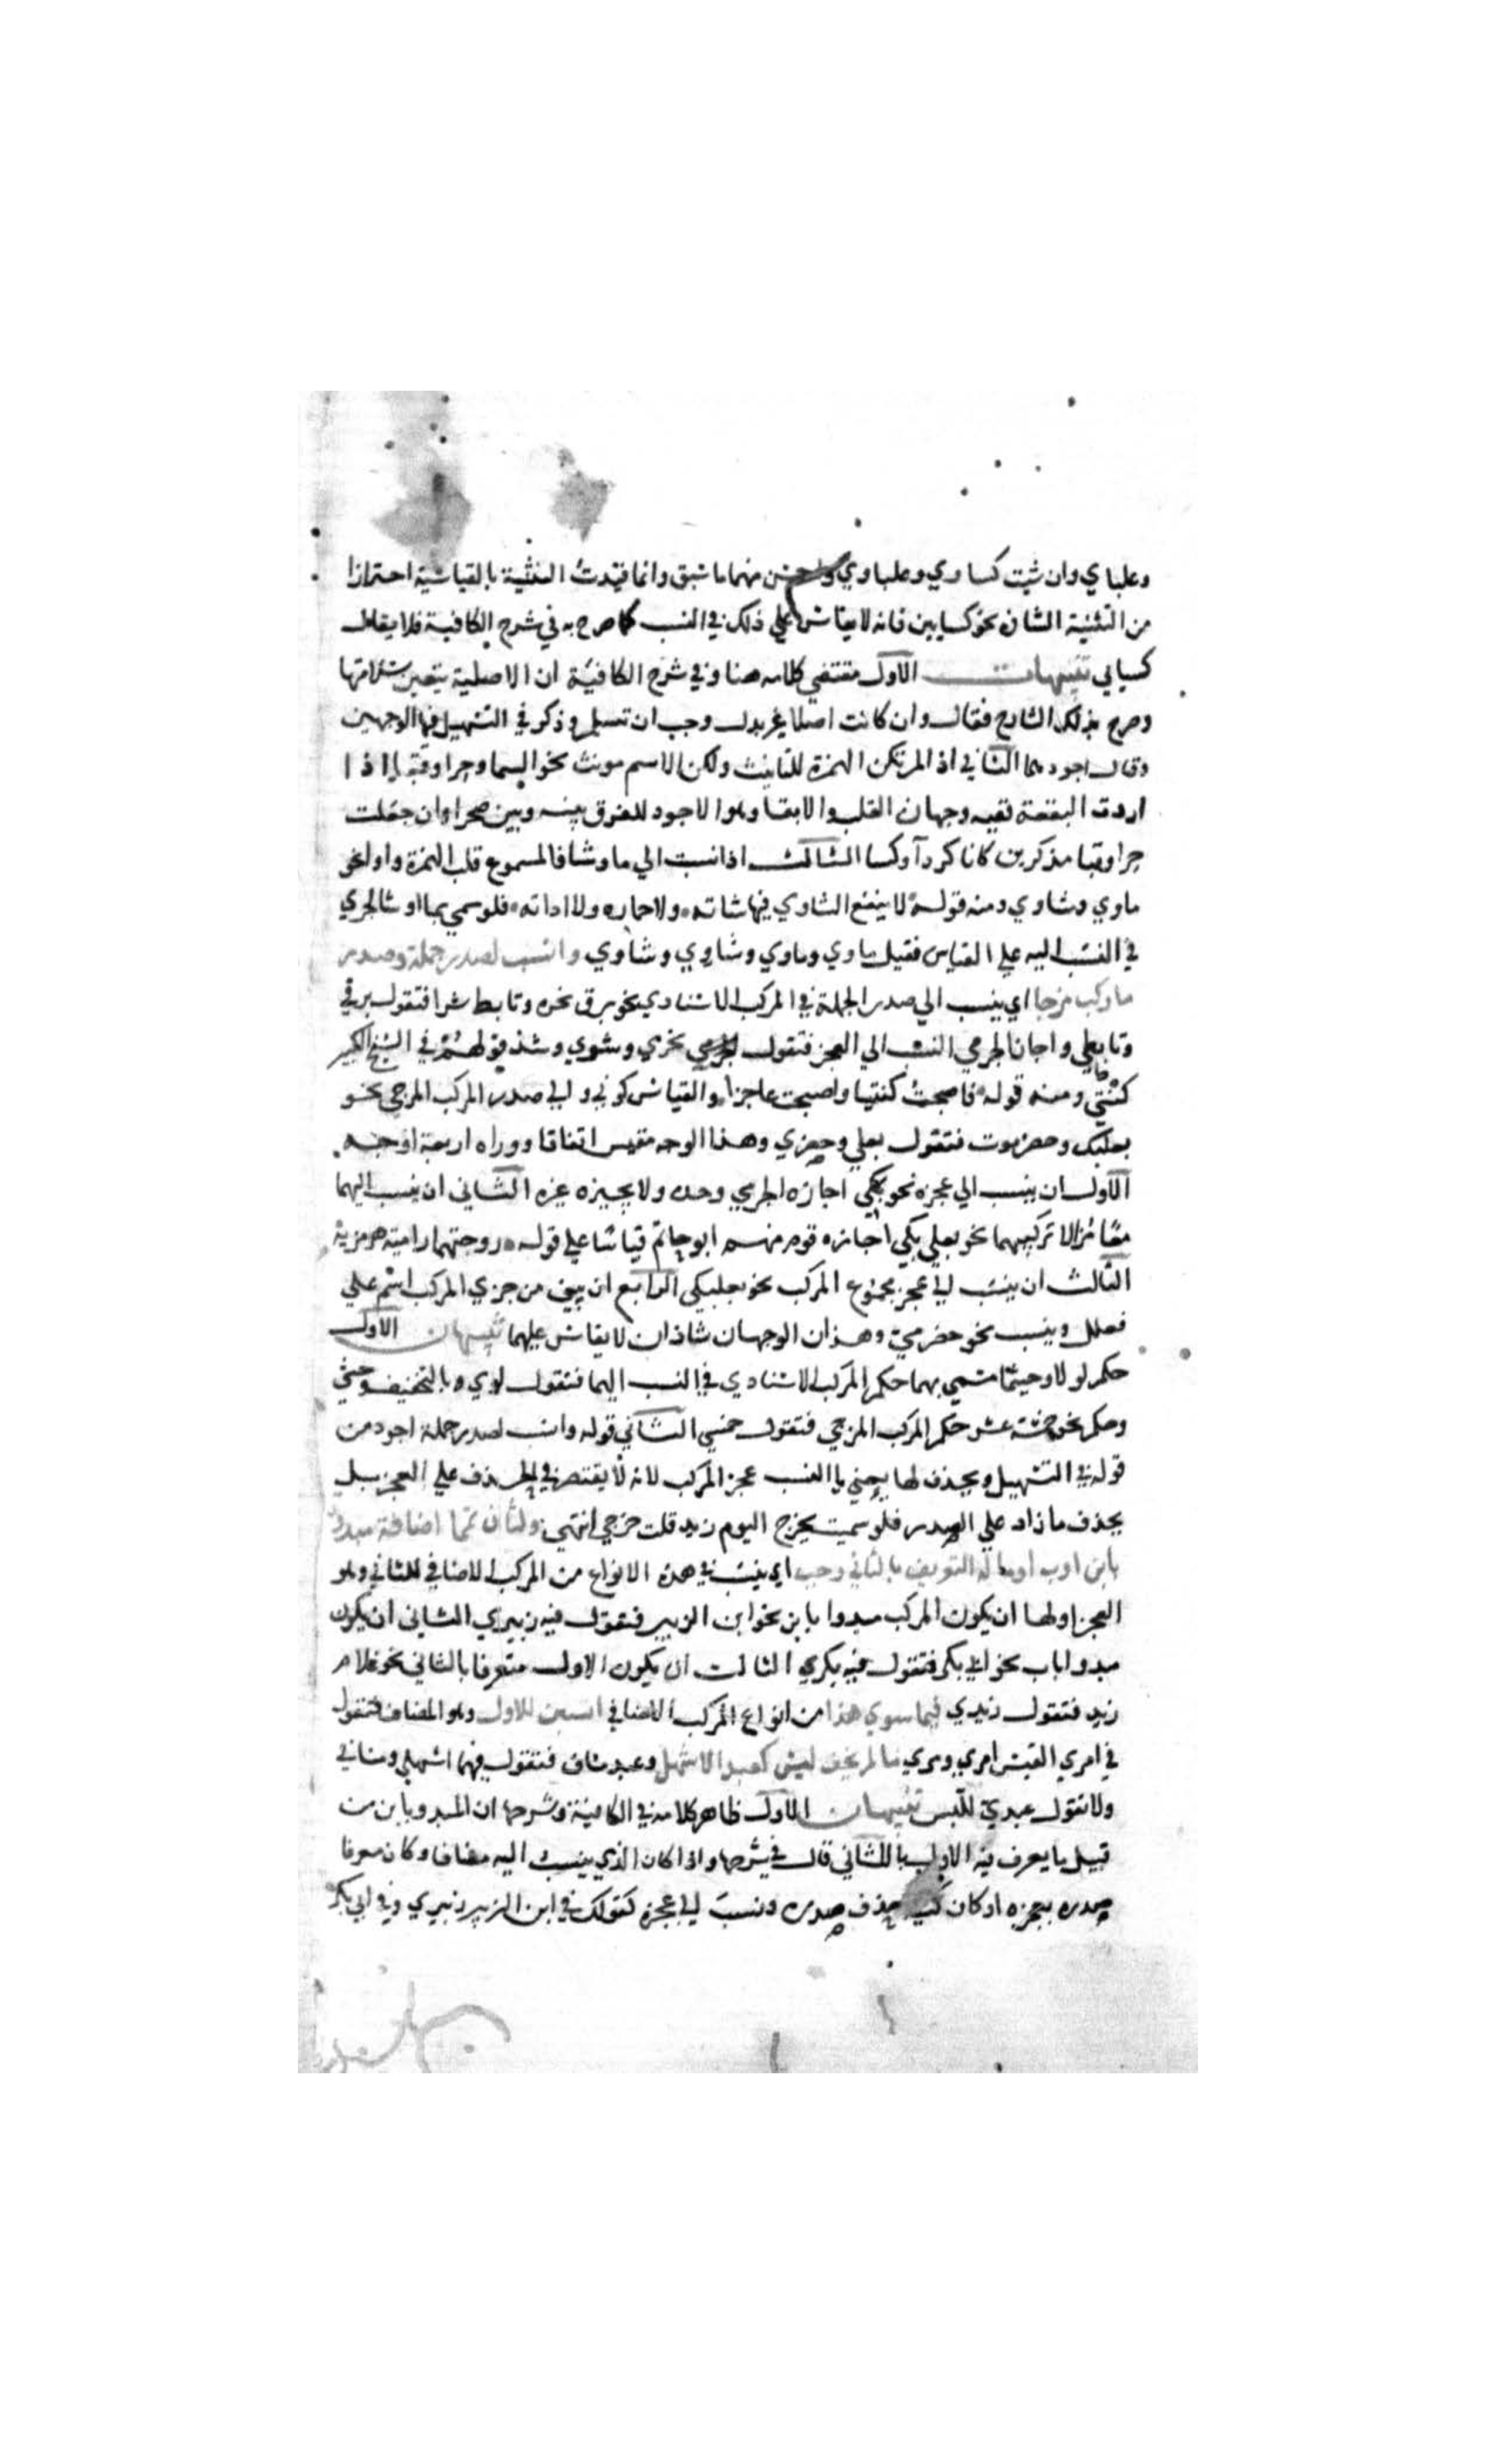 وعلباي وان شيت كساوي وعلباوي واحسن منهما ما سبق وانما قيدت التثنية بالقياسية احترازا
من التثنية الشاذه نحو كسايين فانه لا يقاس علي ذلك في النسب كما صرح به في شرح الكافية فلا يقال
كسيايي تنبيهات الاول مقتضي كلامه هنا وفي شرح الكافية ان الاصلية يتعين سلامتها
وصرح بذلك الشارح فقال وان كانت اصلا غير بدل وجب ان تسلم وذكر في التسهيل فيها الوجهين
وقال اجودهما الثاني اذا لم تكن الهمزة للتانيث ولكن الاسم مونث نحو السما وحرا وقبا اذا
اردت البقعة ففيه وجهان القلب والابقا وهو الاجود للفرق بينه وبين صحرا وان جعلت
حرا وقبا مذكرين كانا كردآ وكسا الثالث اذا نسبت الي ما وشا فالمسموع قلب الهمزة واوا نحو
ماوي وشاوي ومنه قوله لا ينفع الشاوي فيها شاته ولا حماره ولا اداته فلو سمي بما او شا لجري
في النسب اليه علي القياس فقيل ماوي وماوي وشاوي وشاوي وانسب لصدر جملة وصدر
ما ركب مزجا اي ينسب الي صدر الجملة في المركب الاسنادي نحو برق نحره وتابط شرا فتقول برقي
وتابطي واجاز الجرمي النسب الي العجز فتقول نحري وشوي وشذ قولهم في الشيخ الكبير
كنتي ومنه قوله فاصبحت كنتيا واصبحت عاجزا والقياس كوني والي صدر المركب المزجي نحو
بعلبك وحضرموت فتقول بعلي وحضري وهذا الوجه مقيس اتفاقا ووراه اربعة اوجه
الاول ان ينسب الي عجزه نحو بكي اجازه الجرمي وحده ولا يجيزه غيره الثاني ان ينسب اليهما
معا مزالا تركيبهما نحو بعلي بكي اجازه قوم منهم ابو حاتم قياسا علي قوله تزوجتها رامية هرمزية
الثالث ان ينسب الي عجز مجموع المركب نحو بعلبكي الرابع ان يبني من جزي المركب اسم علي
فعلل وينسب نحو حضرمي وهذان الوجهان شاذان لا يقاس عليهما تنبيهات الاول
حكم لولا وحيثما مسمي بهما حكم المركب الاسنادي في النسب اليهما فتقول لوي بالتخفيف وحيثي
وحكم نحو خمسة عشر حكم المركب المزجي فتقول خمسي الثاني قوله وانسب لصدر جملة اجود من
قوله في التسهيل ويحذف لها يعني يا النسب عجز المركب لانه لا يقتصر في الحذف علي العجز بل
يحذف ما زاد علي الصدر فلو سميت يخرج اليوم زيد قلت خرجي انتهي ولثان تمما اضافة مبدوة
بابن او اب او ما له التعريف بالثاني وجب اي ينسب في هذه الانواع من المركب الاضافي للثاني وهو
العجز اولها ان يكون المركب مبدوا بابن نحو ابن الزبير فتقول فيه زبيري الثاني ان يكون
مبدوا باب نحو ابي بكر فتقول فيه بكري الثالث ان يكون الاول متعرفا بالثاني نحو غلام
زيد فتقول زيدي فيما سوي هذا من انواع المركب الاضافي انسبن للاول وهو المضاف فتقول
في امري القيس امري ومري ما لم يخف لبس كعبد الاشهل وعبد مناف فتقول فيهما اشهلي ومنافي
ولا تقول عبدي للبس تنبيهات الاول ظاهر كلامه في الكافية وشرحها ان المبدو بابن من
قبيل ما يعرف فيه الاول بالثاني قال في شرحها واذا كان الذي ينسب اليه مضافا وكان معرفا
صدره بعجزه او كان كنية حذف صدره ونسب الي عجزه كقولك في ابن الزبير زبيري وفي ابي بكر